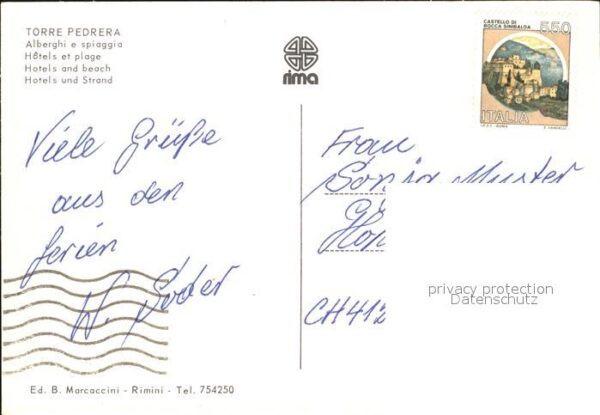 TORRE PEDRERA
Alberghi e spiaggia
Hôtels et plage
Hotels and beach
Hotels und Strand
rima
CASTELLO DI
ROCCA SINIBALDA
550
ITALIA
I.P.Z.S. - ROMA
Viele Grüße
aus den
ferien
W. Soder
Frau
Muster
CH 412
privacy protection
Datenschutz
Ed. B. Marcaccini - Rimini - Tel. 754250